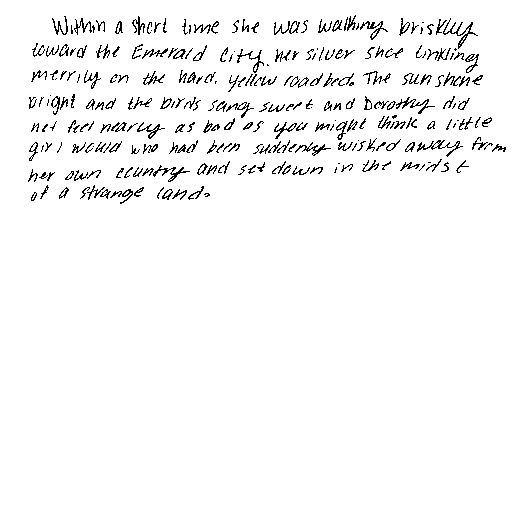 Within a short time she was walking briskly
toward the Emerald City, her silver shoe tinkling
merrily on the hard, yellow roadbed. The sun shone
bright and the birds sang sweet and Dorothy did
not feel nearly as bad as you might think a little
girl would who had been suddenly wisked away from
her own country and set down in the midst
of a strange land.